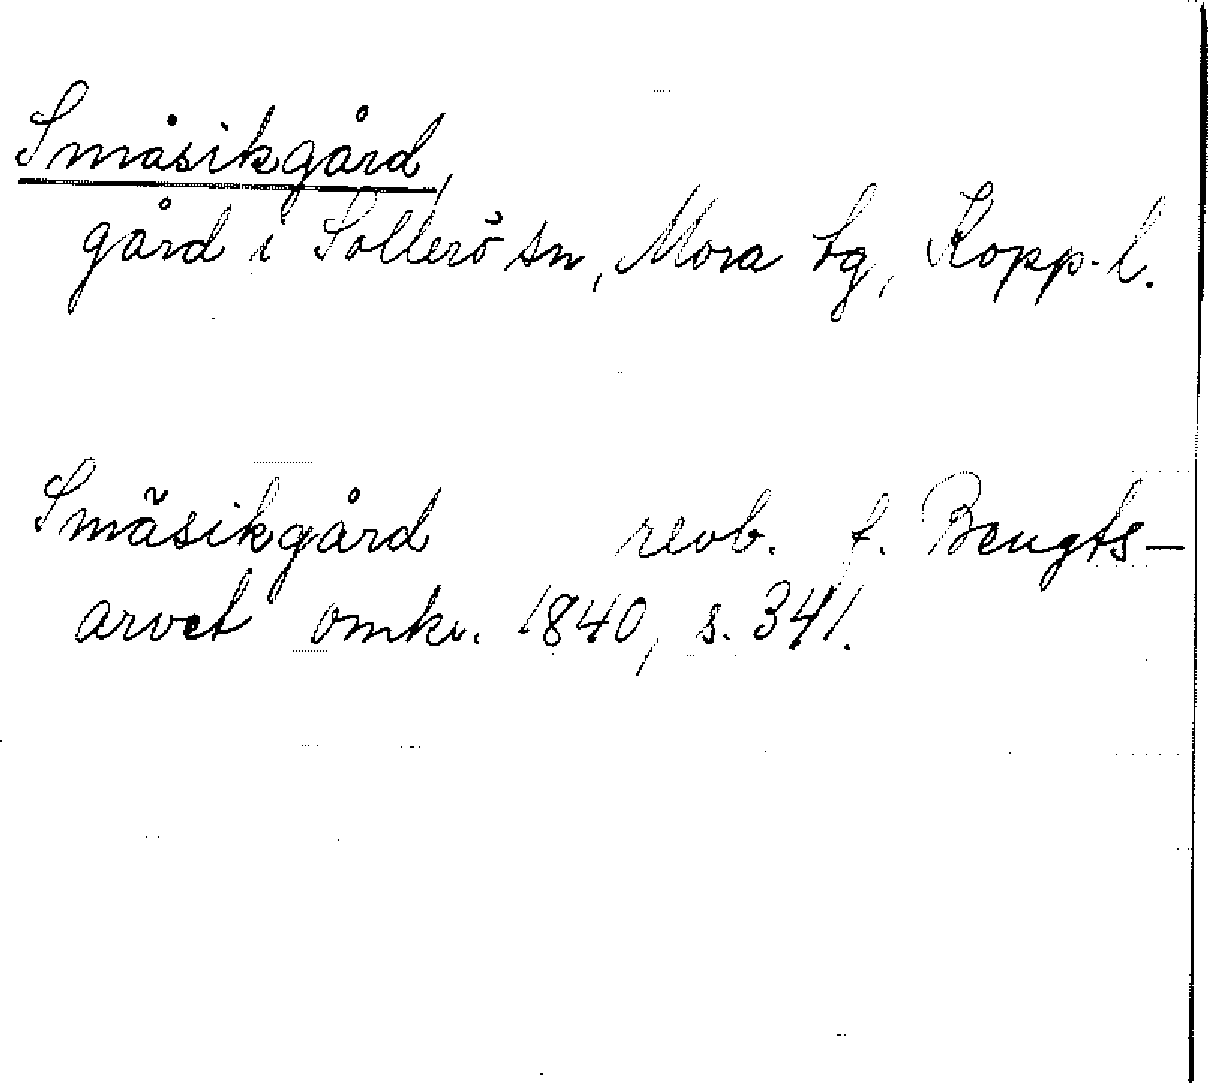 Småsikgård,
gård i Sollerö sn, Mora tg, Kopp. l.
Småsikgård revb. f. Bengts-
arvet omkr. 1840, s. 341.